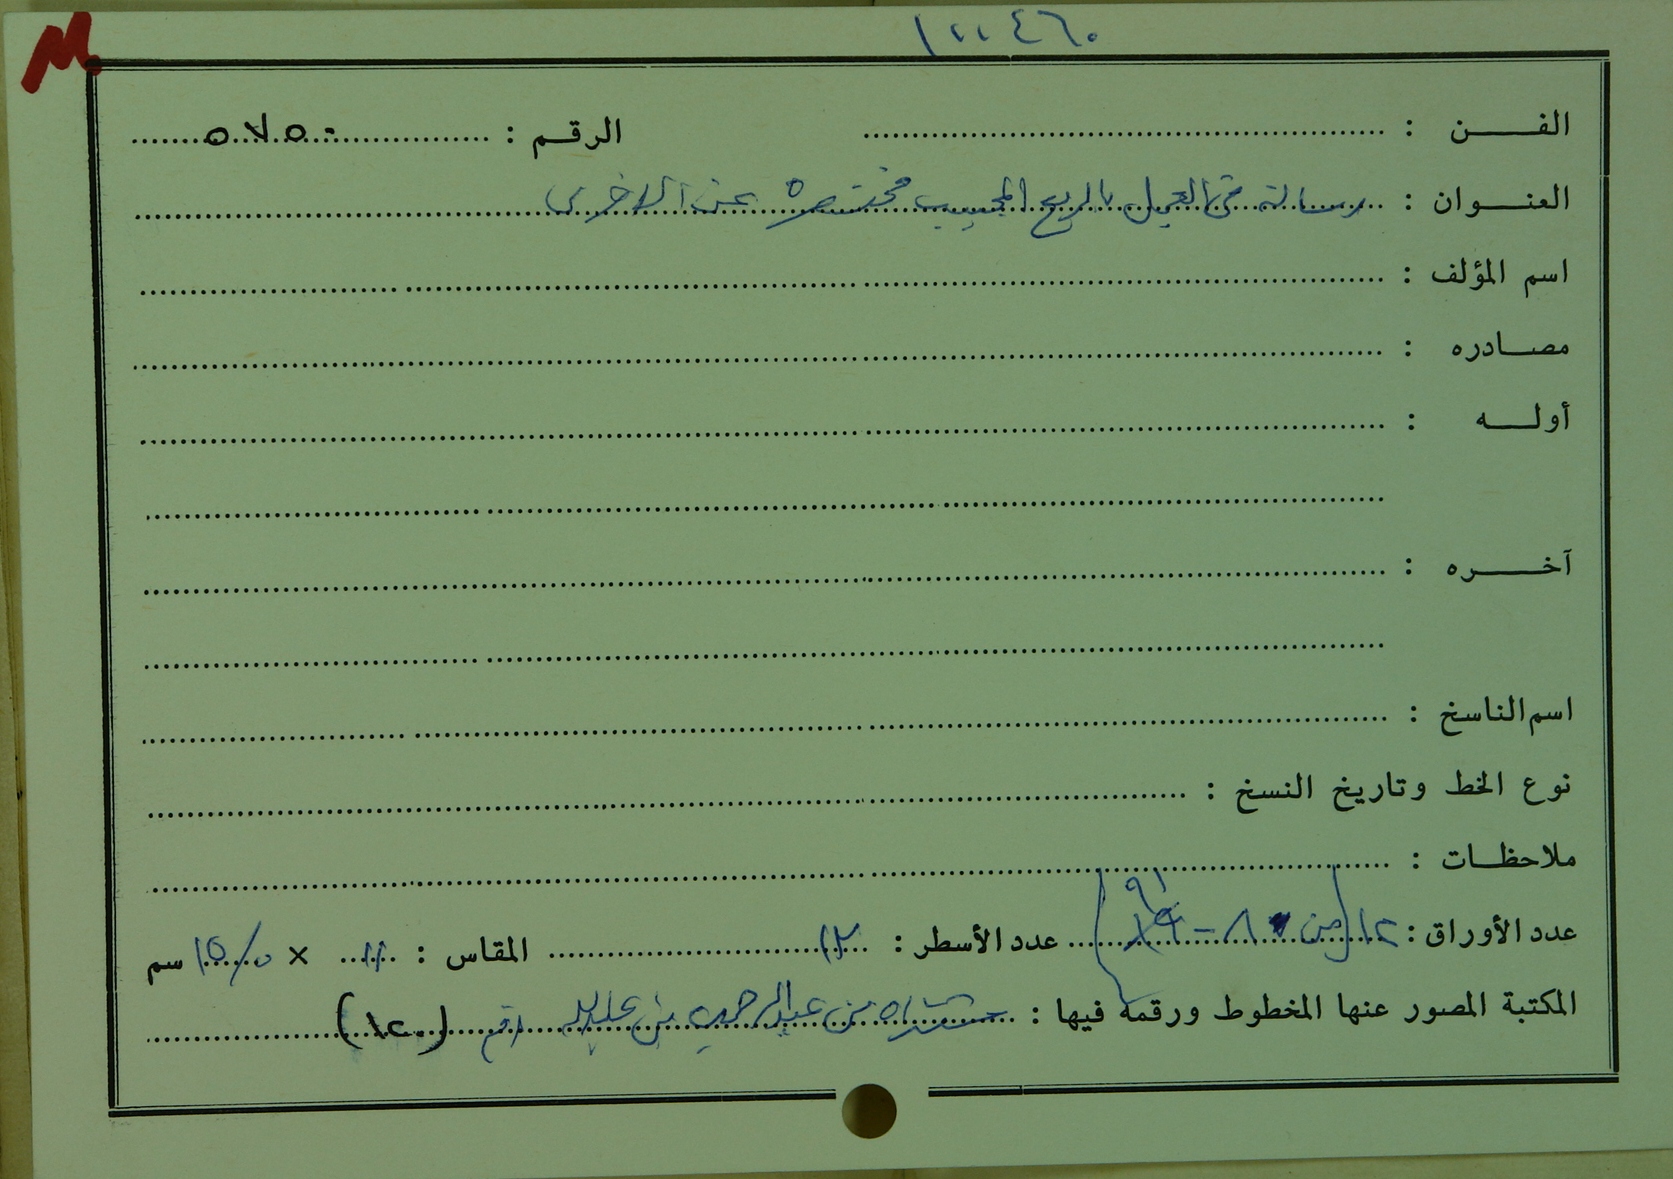 الفن : الرقم : ٥٧٥٠
العنوان : رسالة في العمل بالربع المجيب مختصرة عن الاخرى
اسم المؤلف :
مصادره :
أوله :
آخره :
اسم الناسخ :
نوع الخط وتاريخ النسخ :
ملاحظات :
عدد الأوراق : ١٢ (من ٨٠ - ٩١) عدد الأسطر : ١٣ المقاس : × سم
المكتبة المصور عنها المخطوط ورقمه فيها : من عبدالرحمن بن رقم (١٢٠)